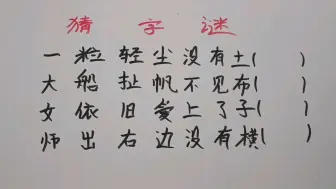 猜字谜
一粒轻尘没有土( )
大船扯帆不见布( )
女依旧爱上了子( )
师出右边没有横( )